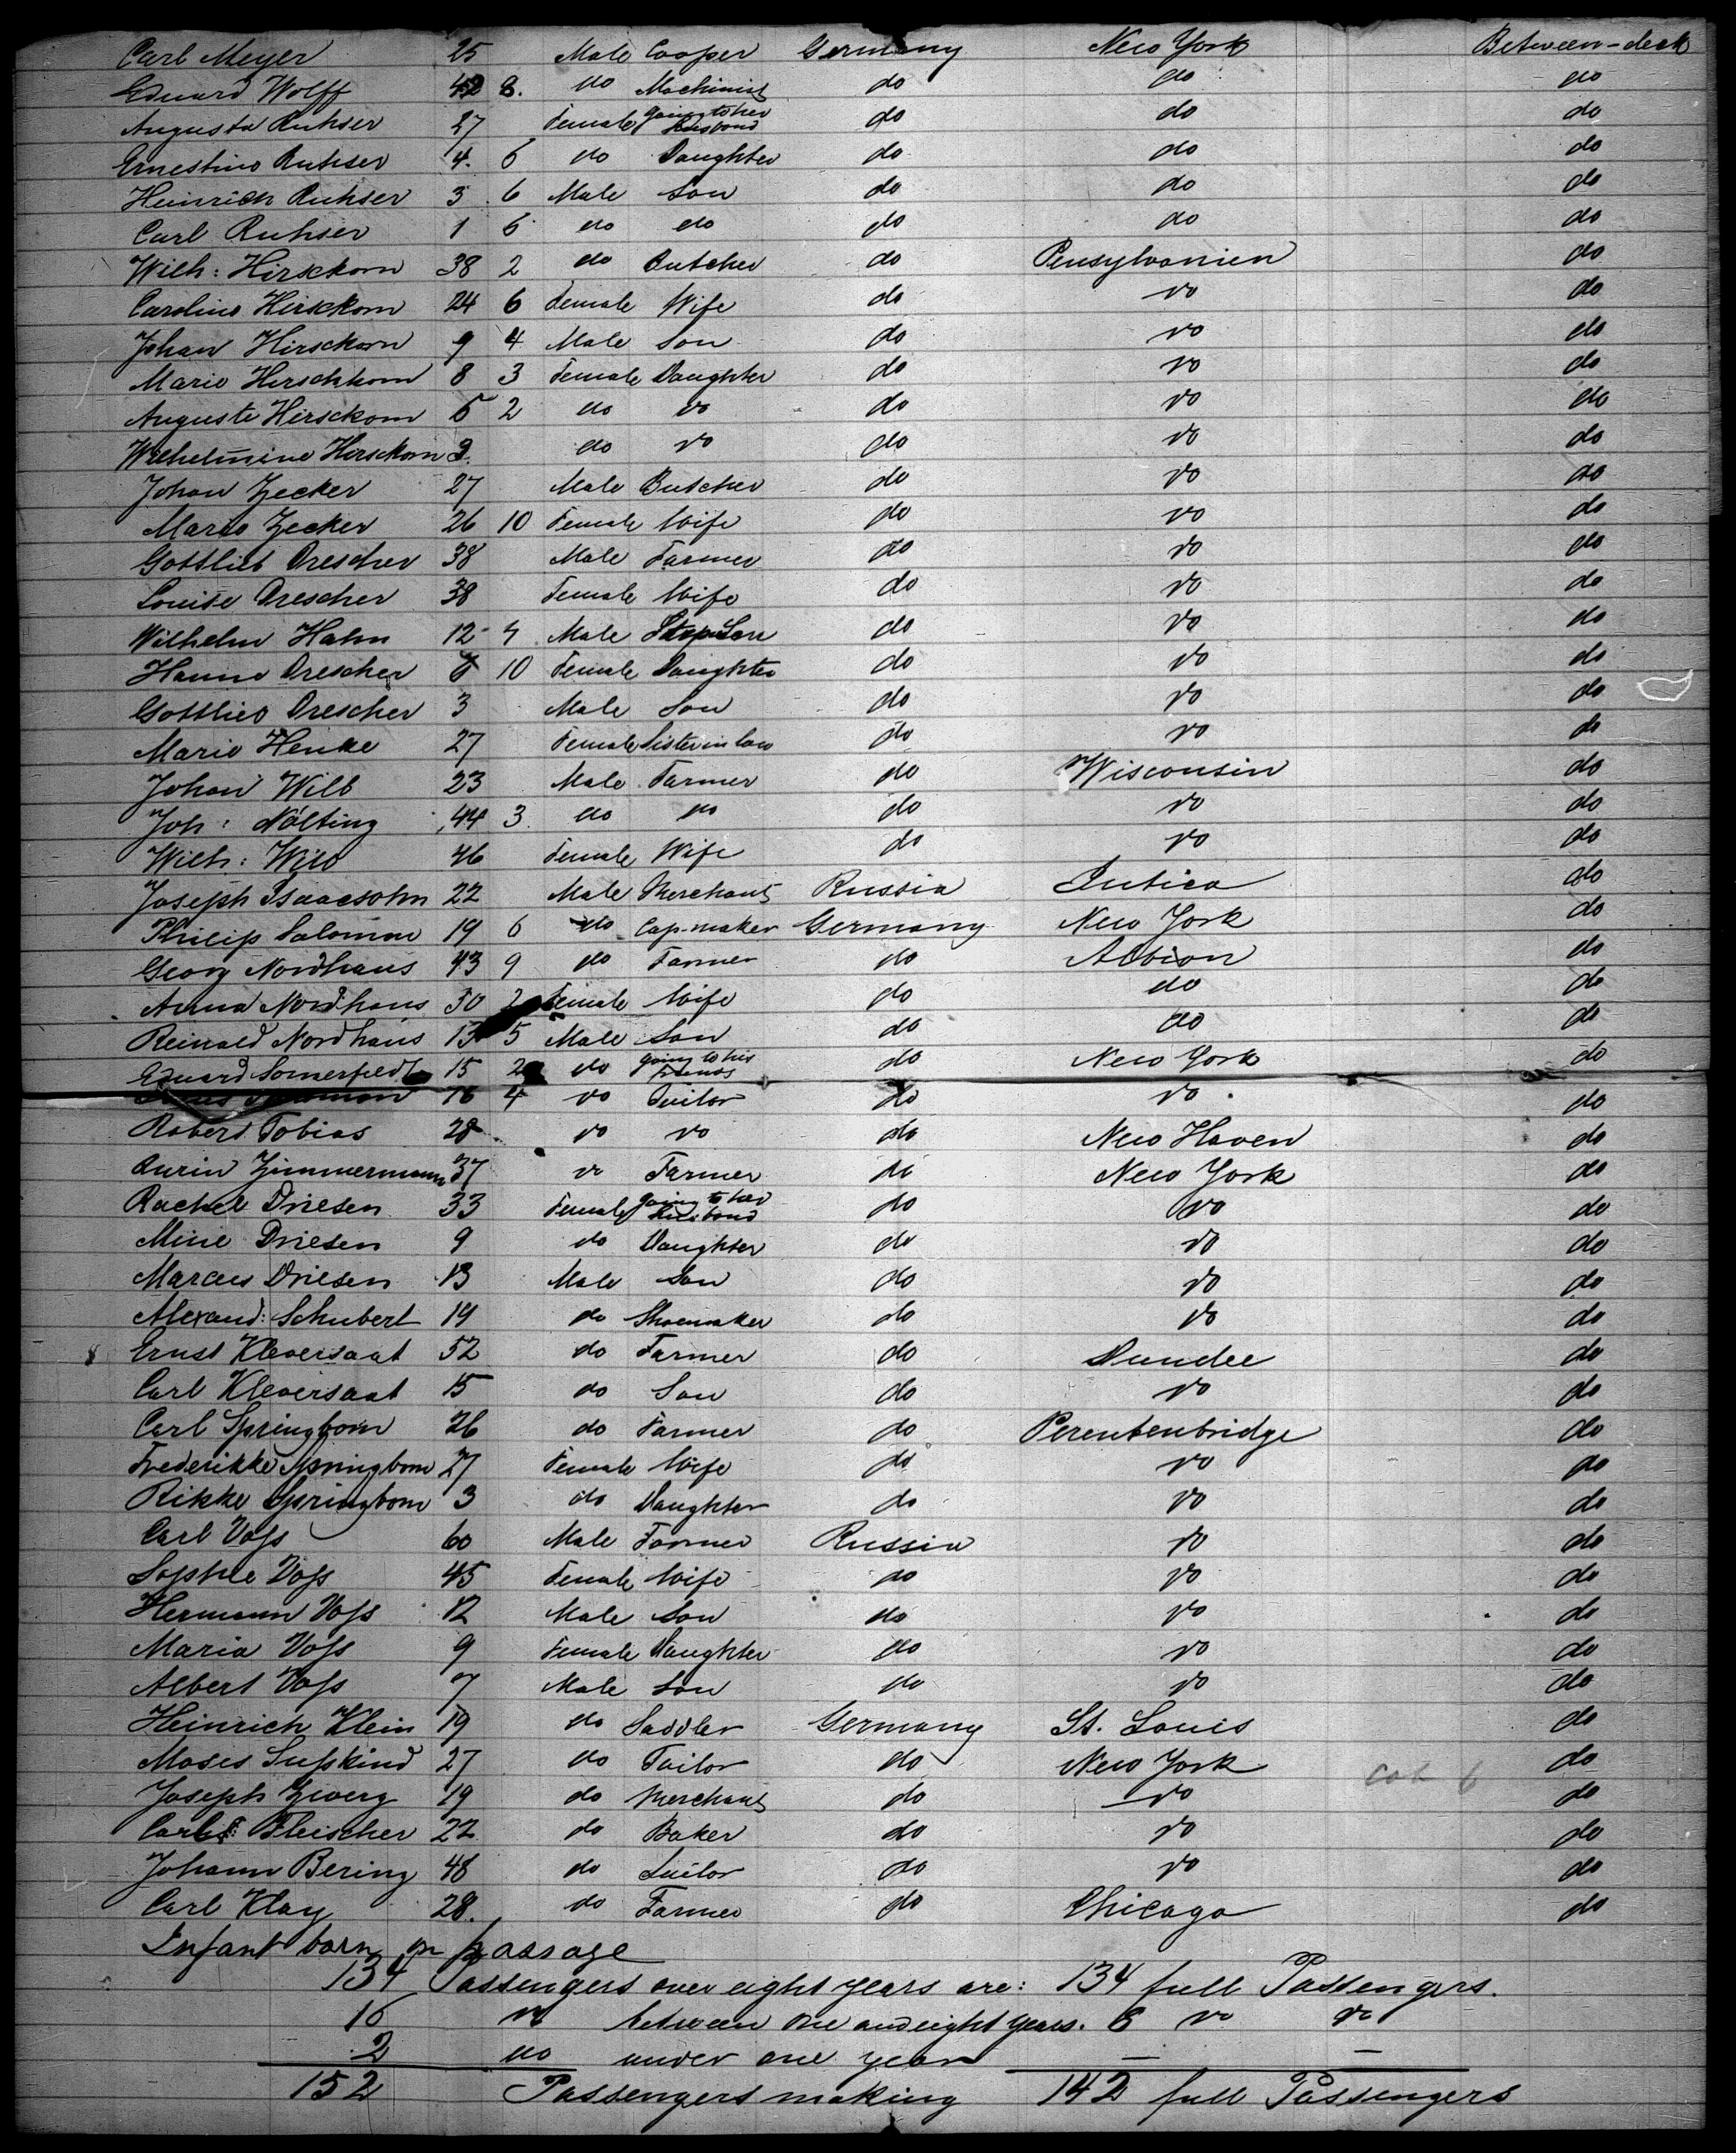 Carl Meyer 25 Male Cooper Germany New York Between-deck
Eduard Wolff 42 8. do Machinist do do do
Augusta Ruhser 27 Female going to her Husband do do do
Ernestine Ruhser 4. 6 do Daughter do do do
Heinrich Ruhser 3 6 Male Son do do do
Carl Ruhser 1 6 do do do do do
Wilh: Hirschkorn 38 2 do Butcher do Pensylvanien do
Caroline Hirschkorn 24 6 Female Wife do do do
Johan Hirschkorn 9 4 Male Son do do do
Marie Hirschkorn 8 3 Female Daughter do do do
Auguste Hirschkorn 5 2 do do do do do
Wilhelmine Hirschkorn 3. do do do do do
Johan Zecker 27 Male Butcher do do do
Marie Zecker 26 10 Female Wife do do do
Gottlieb Drescher 38 Male Farmer do do do
Louise Drescher 38 Female Wife do do do
Wilhelm Hahn 12 7 Male Step Son do do do
Hanne Drescher 10 Female Daughter do do do
Gottlieb Drescher 3 Male Son do do do
Marie Henke 27 Female Sister in law do do do
Johan Wilb 23 Male Farmer do Wisconsin do
Joh: Nölting 44 3. do do do do do
Wilh: 46 Female Wife do do do
Joseph Isaacsohn 22 Male Merchant Russia Intica do
Philip Salomon 19 6 do Cap-maker Germany New York do
Georg Nordhaus 43 9 do Farmer do Albion do
Anna Nordhaus 50 2 Female Wife do do do
Reinald Nordhaus 13 5 Male Son do do do
Eduard Somerfeldt 15 2 do going to his friends do New York do
16 4 do Tailor do do do
Robert Tobias 28 do do do New Haven do
Zimmermann 37 do Farmer do New York do
Rachel Driesen 33 Female going to her Husband do do do
Mine Driesen 9 do Daughter do do do
Marcus Driesen 13 Male Son do do do
Alexand: Schubert 19 do Shoemaker do do do
Ernst Kleversaat 52 do Farmer do Dundee do
Carl Kleversaat 15 do Son do do do
Carl Springborn 26 do Farmer do Perentenbridge do
Frederikke Springborn 27 Female Wife do do do
Rikke Springborn 3 do Daughter do do do
Carl Voss 60 Male Farmer Russia do do
Sophie Voss 45 Female Wife do do do
Hermann Voss 12 Male Son do do do
Maria Voss 9 Female Daughter do do do
Albert Voss 7 Male Son do do do
Heinrich Klein 19 do Saddler Germany St. Louis do
Moses Susskind 27 do Tailor do New York do
Joseph Zwerg 19 do Merchant do do do
Carl Fleischer 22 do Baker do do do
Johann Bering 48 do Tailor do do do
Carl Klay 28. do Farmer do Chicago do
Infant born on passage
134 Passengers over eight years are: 134 full Passengers.
16 do between one and eight years. 8 do do
2 do under one year — —
152 Passengers making 142 full Passengers